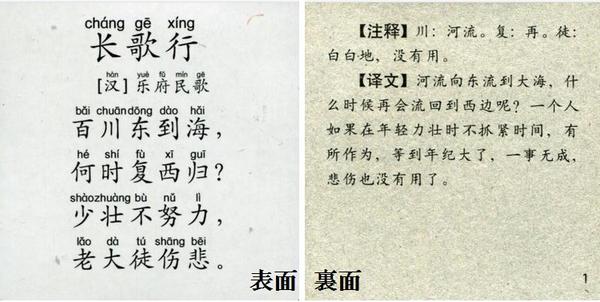 cháng gē xíng
长歌行
hàn yuè fǔ mín gē
[汉]乐府民歌
bǎi chuān dōng dào hǎi
百川东到海，
hé shí fù xī guī
何时复西归？
shàozhuàng bù nǔ lì
少壮不努力，
lǎo dà tú shāng bēi
老大徒伤悲。
表面
【注释】川：河流。复：再。徒：
白白地，没有用。
【译文】河流向东流到大海，什
么时候再会流回到西边呢？一个人
如果在年轻力壮时不抓紧时间，有
所作为，等到年纪大了，一事无成，
悲伤也没有用了。
裏面
1